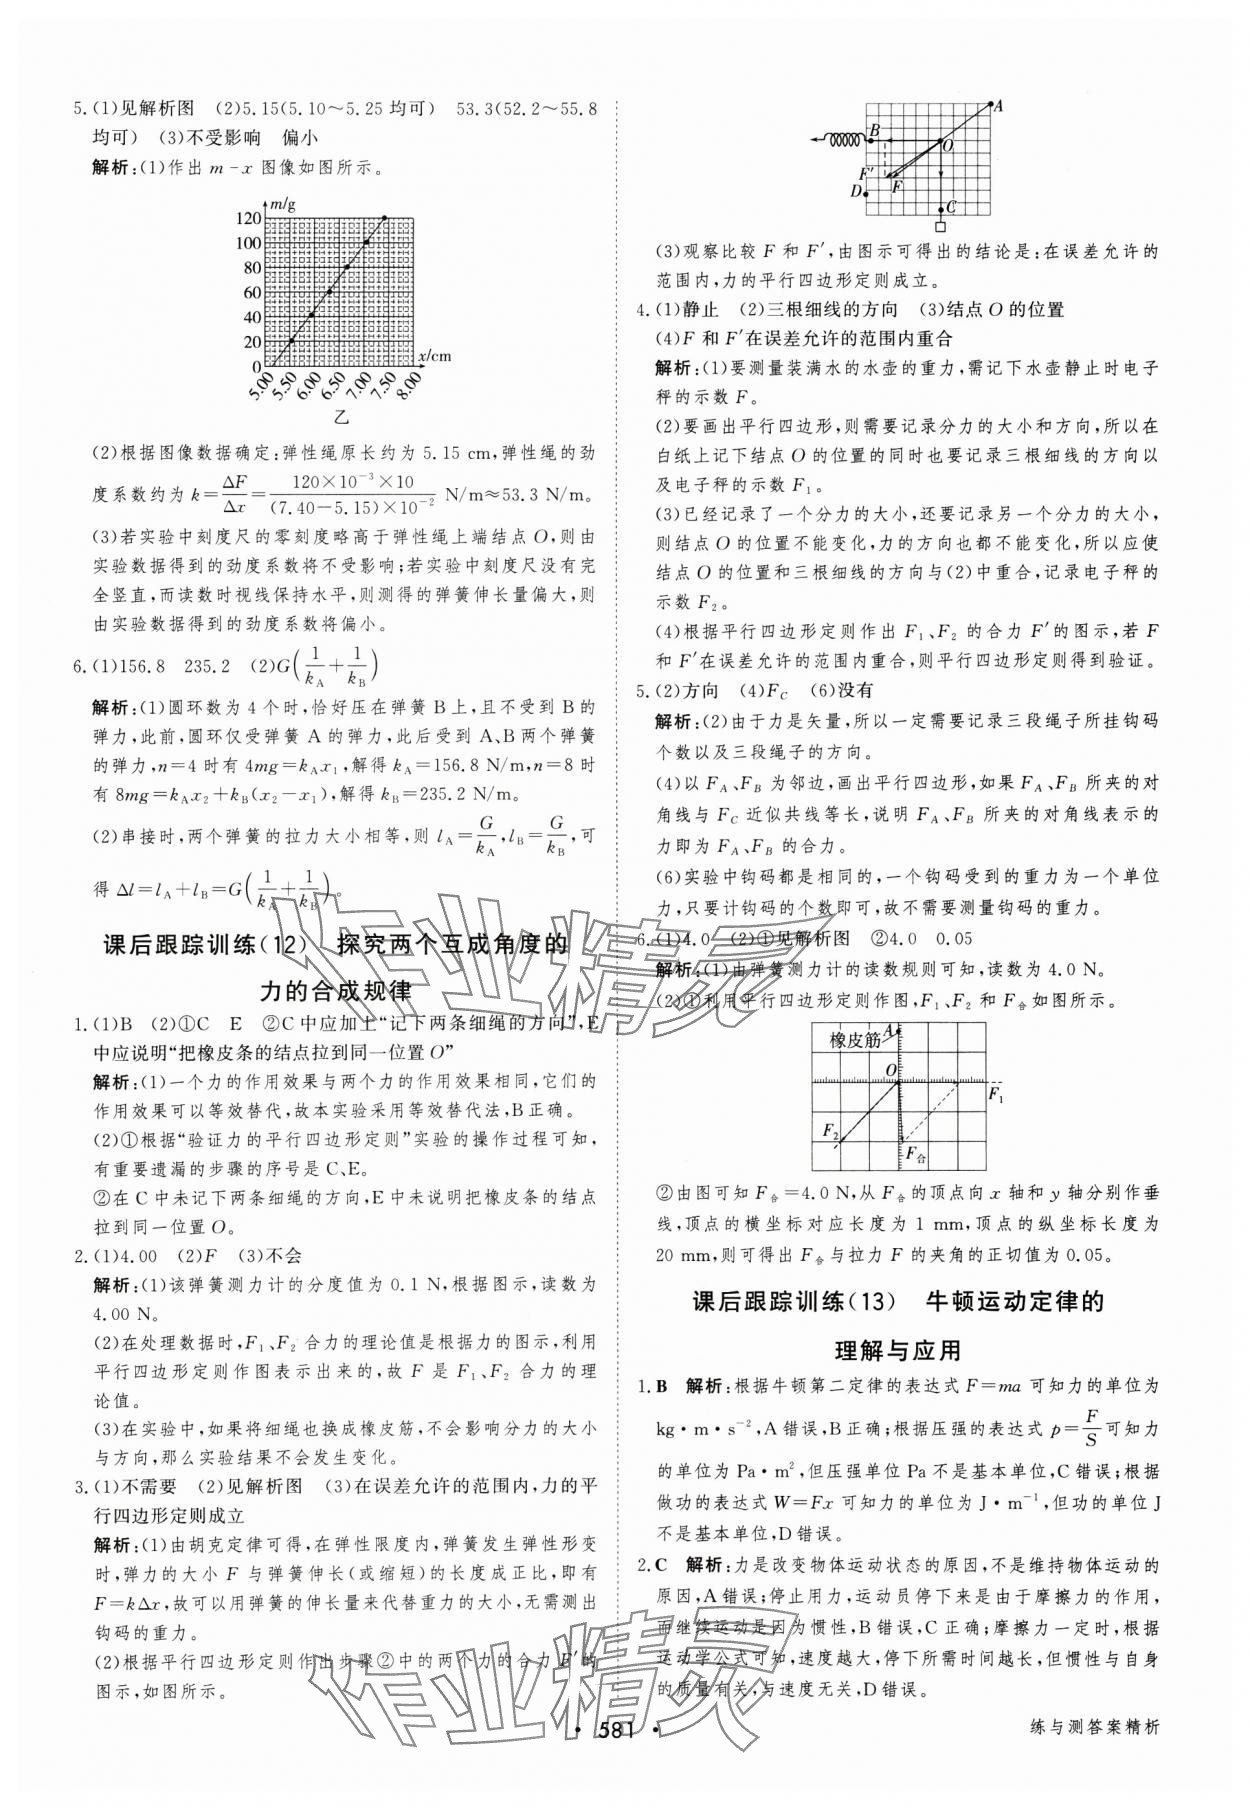 5.(1)见解析图　(2)5.15(5.10～5.25 均可)　53.3(52.2～55.8
均可)　(3)不受影响　偏小
解析:(1)作出 m-x 图像如图所示。
m/g
120
100
80
60
40
20
0
x/cm
5.00
5.50
6.00
6.50
7.00
7.50
8.00
乙
(2)根据图像数据确定:弹性绳原长约为 5.15 cm,弹性绳的劲
度系数约为 k=ΔF/Δx=120×10⁻³×10/((7.40-5.15)×10⁻²) N/m≈53.3 N/m。
(3)若实验中刻度尺的零刻度略高于弹性绳上端结点 O,则由
实验数据得到的劲度系数将不受影响;若实验中刻度尺没有完
全竖直,而读数时视线保持水平,则测得的弹簧伸长量偏大,则
由实验数据得到的劲度系数将偏小。
6.(1)156.8　235.2　(2)G(1/k_A+1/k_B)
解析:(1)圆环数为 4 个时,恰好压在弹簧 B 上,且不受到 B 的
弹力,此前,圆环仅受弹簧 A 的弹力,此后受到 A、B 两个弹簧
的弹力,n=4 时有 4mg=k_Ax₁,解得 k_A=156.8 N/m,n=8 时
有 8mg=k_Ax₂+k_B(x₂-x₁),解得 k_B=235.2 N/m。
(2)串接时,两个弹簧的拉力大小相等,则 l_A=G/k_A,l_B=G/k_B,可
得 Δl=l_A+l_B=G(1/k_A+1/k_B)。
课后跟踪训练(12)　探究两个互成角度的
力的合成规律
1.(1)B　(2)①C　E　②C 中应加上“记下两条细绳的方向”,E
中应说明“把橡皮条的结点拉到同一位置 O”
解析:(1)一个力的作用效果与两个力的作用效果相同,它们的
作用效果可以等效替代,故本实验采用等效替代法,B 正确。
(2)①根据“验证力的平行四边形定则”实验的操作过程可知,
有重要遗漏的步骤的序号是 C、E。
②在 C 中未记下两条细绳的方向,E 中未说明把橡皮条的结点
拉到同一位置 O。
2.(1)4.00　(2)F　(3)不会
解析:(1)该弹簧测力计的分度值为 0.1 N,根据图示,读数为
4.00 N。
(2)在处理数据时,F₁、F₂ 合力的理论值是根据力的图示,利用
平行四边形定则作图表示出来的,故 F 是 F₁、F₂ 合力的理
论值。
(3)在实验中,如果将细绳也换成橡皮筋,不会影响分力的大小
与方向,那么实验结果不会发生变化。
3.(1)不需要　(2)见解析图　(3)在误差允许的范围内,力的平
行四边形定则成立
解析:(1)由胡克定律可得,在弹性限度内,弹簧发生弹性形变
时,弹力的大小 F 与弹簧伸长(或缩短)的长度成正比,即有
F=kΔx,故可以用弹簧的伸长量来代替重力的大小,无需测出
钩码的重力。
(2)根据平行四边形定则作出步骤②中的两个力的合力 F′的
图示,如图所示。
A
B
O
F′
F
D
C
(3)观察比较 F 和 F′,由图示可得出的结论是:在误差允许的
范围内,力的平行四边形定则成立。
4.(1)静止　(2)三根细线的方向　(3)结点 O 的位置
(4)F 和 F′在误差允许的范围内重合
解析:(1)要测量装满水的水壶的重力,需记下水壶静止时电子
秤的示数 F。
(2)要画出平行四边形,则需要记录分力的大小和方向,所以在
白纸上记下结点 O 的位置的同时也要记录三根细线的方向以
及电子秤的示数 F₁。
(3)已经记录了一个分力的大小,还要记录另一个分力的大小,
则结点 O 的位置不能变化,力的方向也都不能变化,所以应使
结点 O 的位置和三根细线的方向与(2)中重合,记录电子秤的
示数 F₂。
(4)根据平行四边形定则作出 F₁、F₂ 的合力 F′的图示,若 F
和 F′在误差允许的范围内重合,则平行四边形定则得到验证。
5.(2)方向　(4)F_C　(6)没有
解析:(2)由于力是矢量,所以一定需要记录三段绳子所挂钩码
个数以及三段绳子的方向。
(4)以 F_A、F_B 为邻边,画出平行四边形,如果 F_A、F_B 所夹的对
角线与 F_C 近似共线等长,说明 F_A、F_B 所夹的对角线表示的
力即为 F_A、F_B 的合力。
(6)实验中钩码都是相同的,一个钩码受到的重力为一个单位
力,只要计钩码的个数即可,故不需要测量钩码的重力。
6.(1)4.0　(2)①见解析图　②4.0　0.05
解析:(1)由弹簧测力计的读数规则可知,读数为 4.0 N。
(2)①利用平行四边形定则作图,F₁、F₂ 和 F合如图所示。
橡皮筋
A
O
F₁
F₂
F合
②由图可知 F合=4.0 N,从 F合的顶点向 x 轴和 y 轴分别作垂
线,顶点的横坐标对应长度为 1 mm,顶点的纵坐标长度为
20 mm,则可得出 F合与拉力 F 的夹角的正切值为 0.05。
课后跟踪训练(13)　牛顿运动定律的
理解与应用
1.B　解析:根据牛顿第二定律的表达式 F=ma 可知力的单位为
kg·m·s⁻²,A 错误,B 正确;根据压强的表达式 p=F/S可知力
的单位为 Pa·m²,但压强单位 Pa 不是基本单位,C 错误;根据
做功的表达式 W=Fx 可知力的单位为 J·m⁻¹,但功的单位 J
不是基本单位,D 错误。
2.C　解析:力是改变物体运动状态的原因,不是维持物体运动的
原因,A 错误;停止用力,运动员停下来是由于摩擦力的作用,
而继续运动是因为惯性,B 错误,C 正确;摩擦力一定时,根据
运动学公式可知,速度越大,停下所需时间越长,但惯性与自身
的质量有关,与速度无关,D 错误。
作业精灵
作业精灵
· 581 ·
练与测答案精析